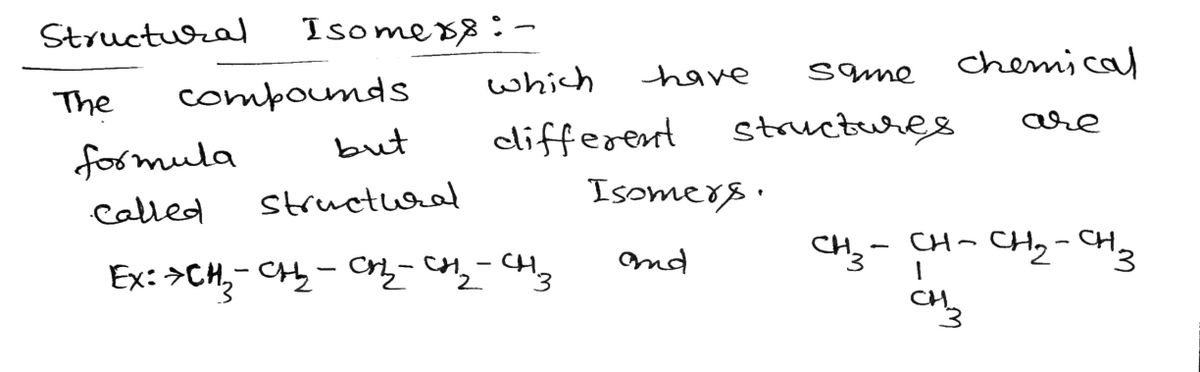 Structural Isomers:-
The compounds which have same chemical
formula but different structures are
called structural Isomers.
Ex:→CH₃-CH₂-CH₂-CH₂-CH₃ and CH₃-CH-CH₂-CH₃
|
CH₃